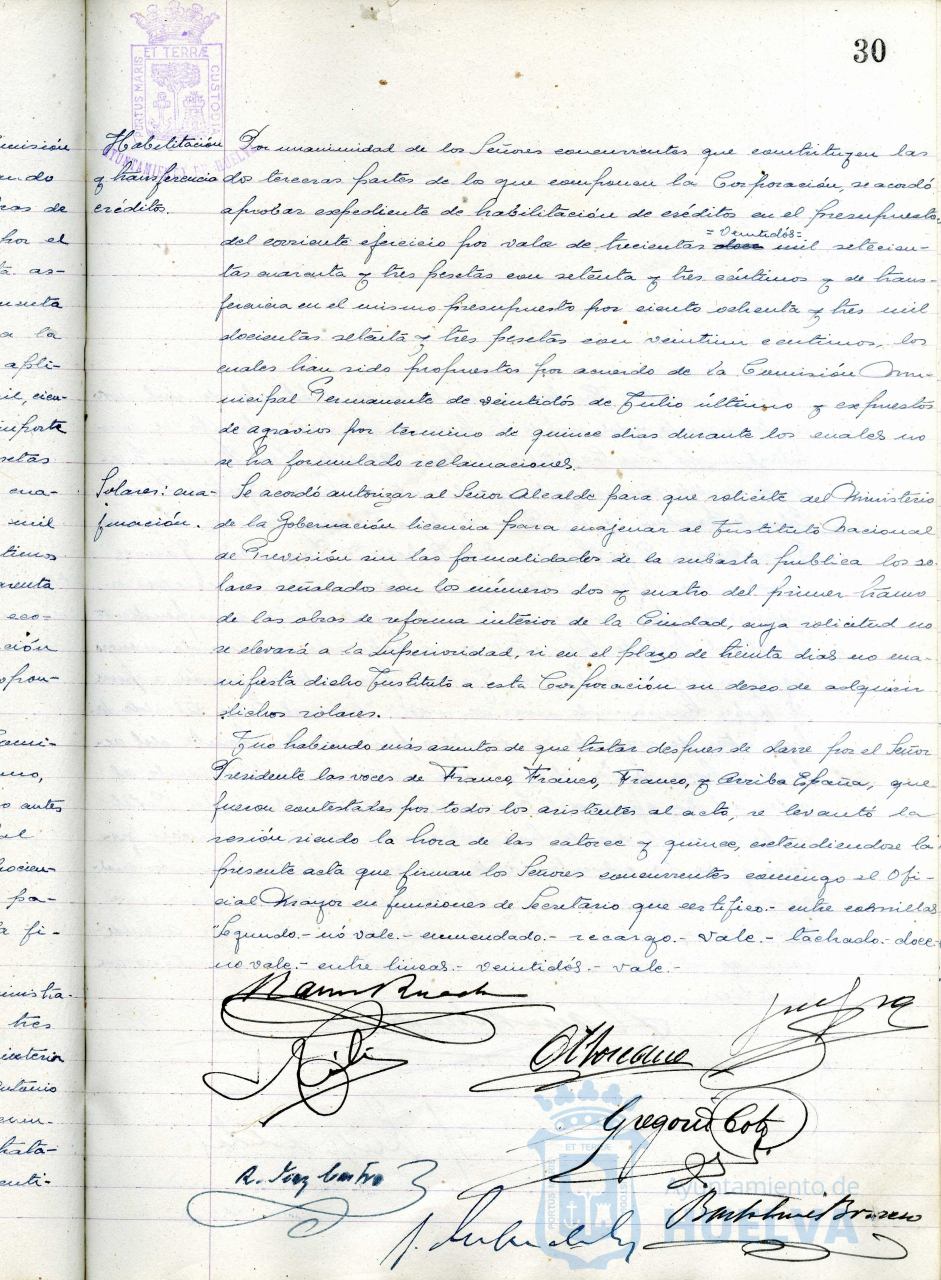 30
ET TERRÆ
PORTUS MARIS
CUSTODIA
AYUNTAMIENTO DE HUELVA
Habilitación
y transferencia
créditos.
Por unanimidad de los Señores concurrentes que constituyen las
dos terceras partes de lo que componen la Corporación, se acordó
aprobar expediente de habilitación de créditos en el presupuesto
= Veintidós =
del corriente ejercicio por valor de trecientas doce mil setecien-
tas cuarenta y tres pesetas con setenta y tres céntimos y de trans-
ferencia en el mismo presupuesto por ciento ochenta y tres mil
docientas setenta y tres pesetas con veintiun centimos, los
cuales han sido propuestos por acuerdo de la Comisión Mu-
nicipal Permanente de veintidós de Julio último y expuestos
de agravios por termino de quince dias durante los cuales no
se ha formulado reclamaciones.
Solares: ena-
jenación.
Se acordó autorizar al Señor Alcalde para que solicite del Ministerio
de la Gobernación licencia para enajenar al Instituto Nacional
de Previsión sin las formalidades de la subasta publica los so-
lares señalados con los números dos y cuatro del primer tramo
de las obras de reforma interior de la Ciudad, cuya solicitud no
se elevará a la Superioridad, si en el plazo de treinta dias no ma-
nifiesta dicho Instituto a esta Corporación su deseo de adquirir
dichos solares.
Y no habiendo más asuntos de que tratar despues de darse por el Señor
Presidente las voces de Franco, Franco, Franco, y Arriba España, que
fueron contestadas por todos los asistentes al acto, se levantó la
sesión siendo la hora de las catorce y quince, extendiendose la
presente acta que firman los Señores concurrentes conmigo el Ofi-
cial Mayor en funciones de Secretario que certifico.- entre comillas
"Segundo.- nó vale.- enmendado.- recargo.- Vale.- tachado.- doce-
no vale.- entre lineas.- veintidós.- vale.-
Gregorio Coto
ET TERRÆ
PORTUS MARIS
CUSTODIA
Ayuntamiento de
HUELVA